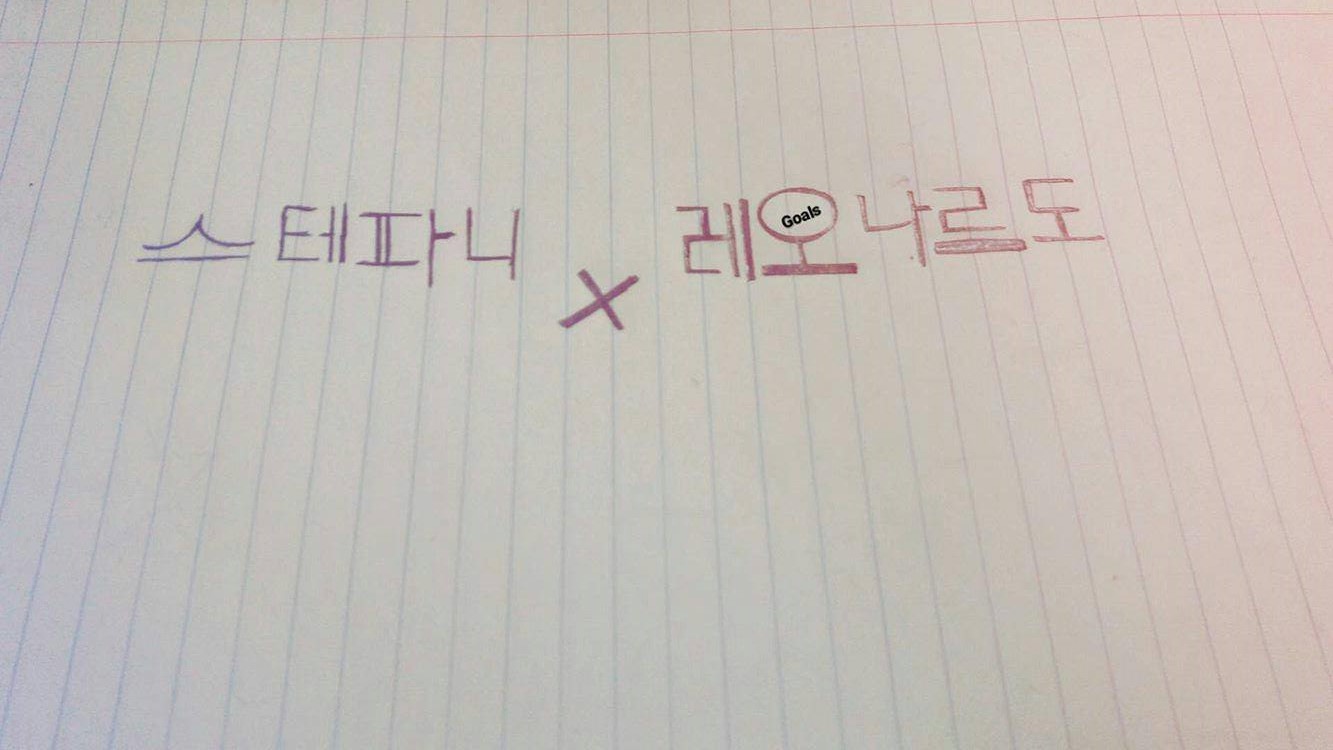 스테파니 x 레오나르도
Goals